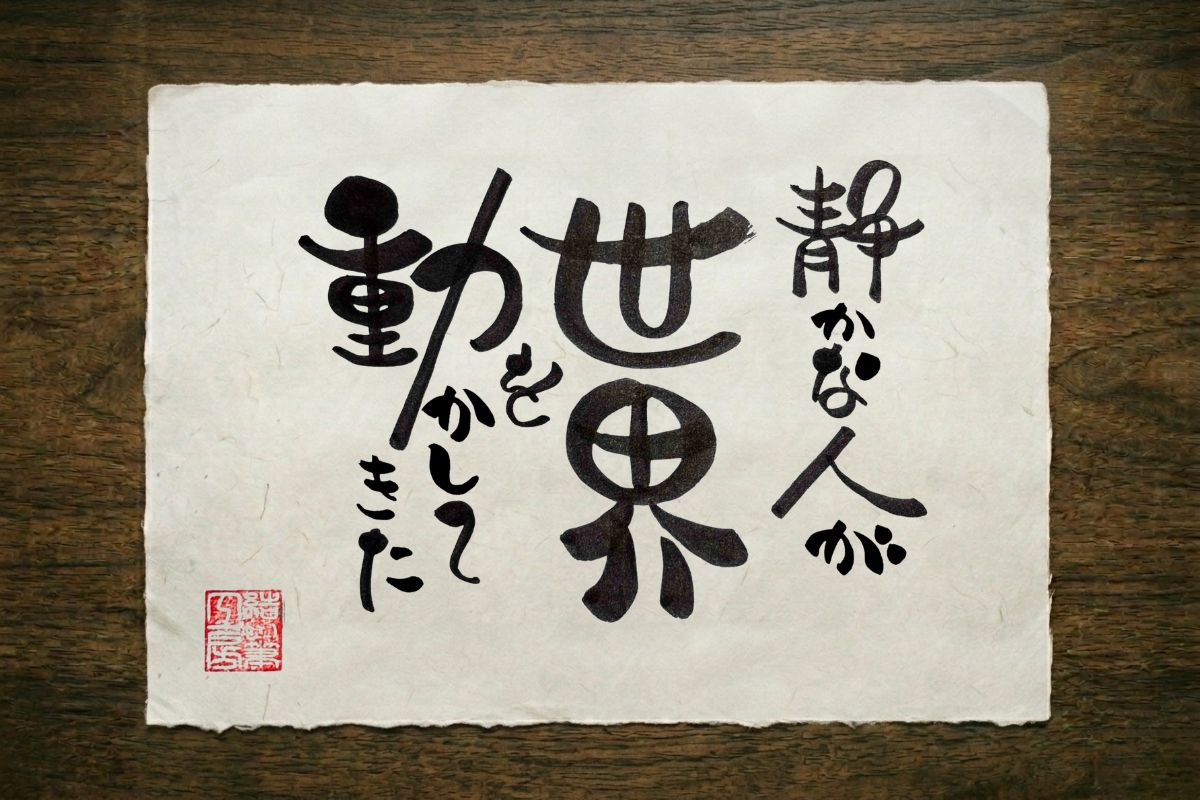 静かな人が
世界を
動かして
きた